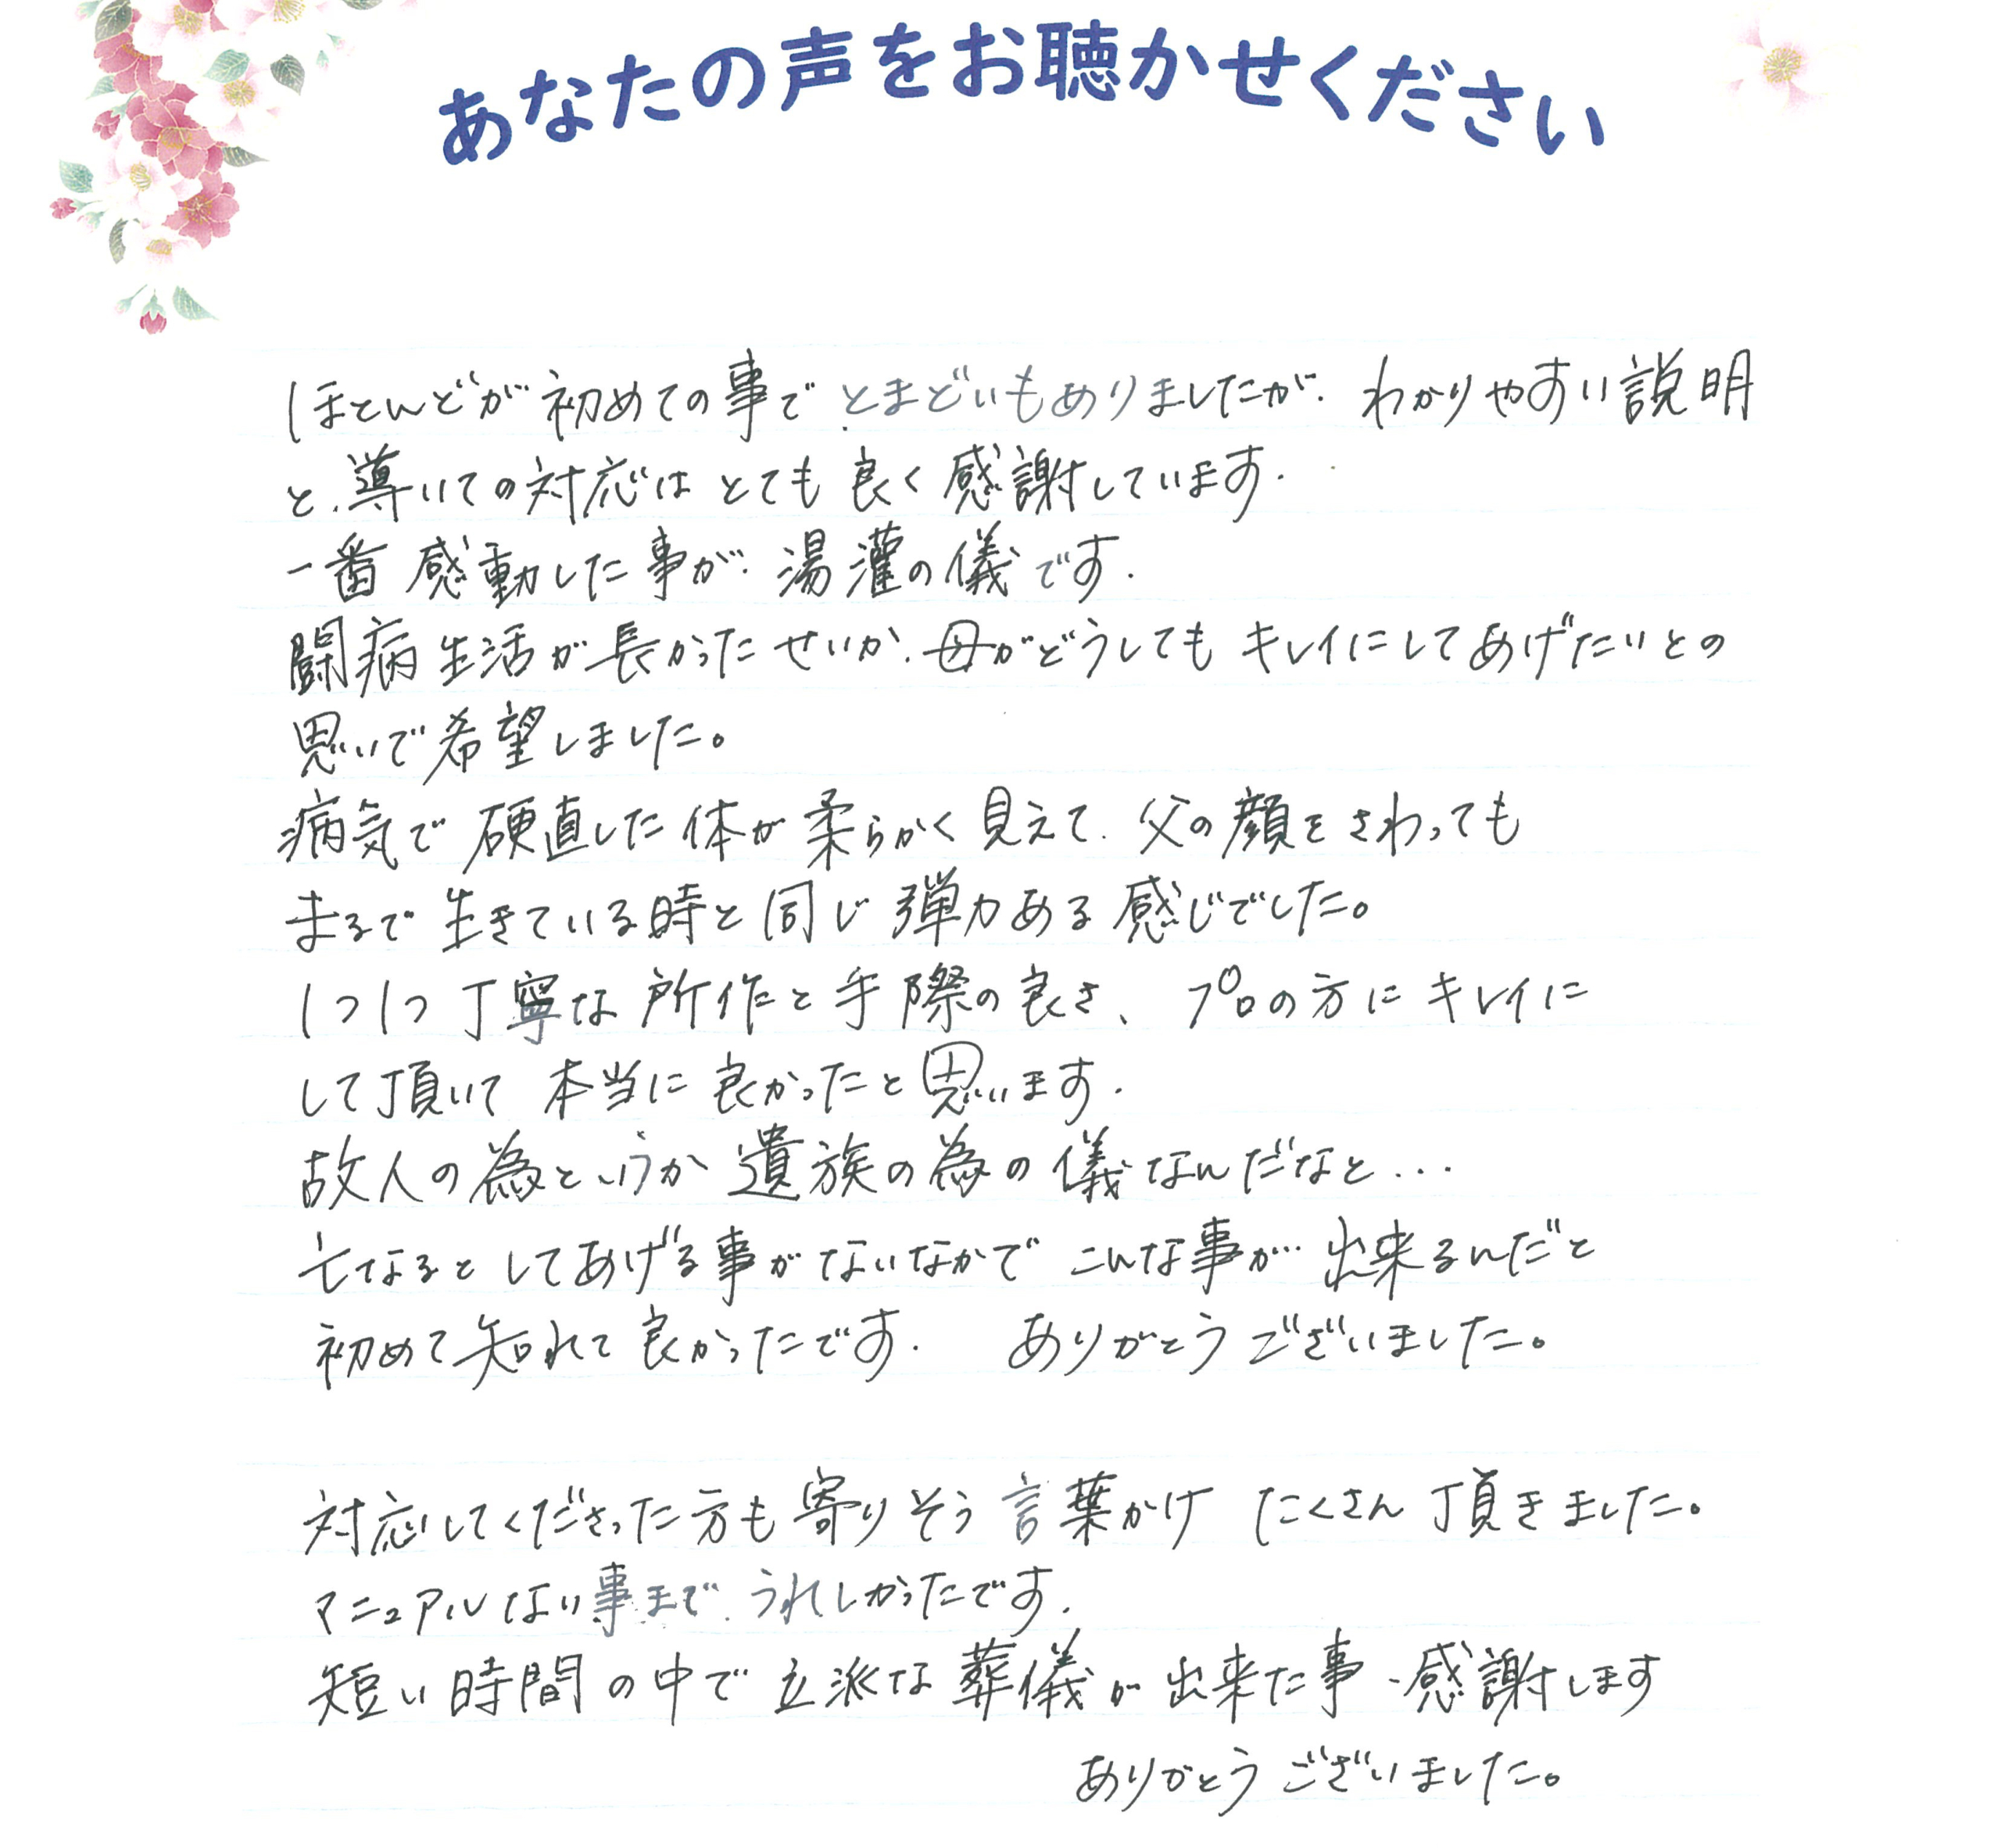 あなたの声をお聴かせください
ほとんどが初めての事でとまどいもありましたが、わかりやすい説明
と、導いての対応はとても良く感謝しています.
一番感動した事が、湯灌の儀です.
闘病生活が長かったせいか、母がどうしてもキレイにしてあげたいとの
思いで希望しました。
病気で硬直した体が柔らかく見えて、父の顔をさわっても
まるで生きている時と同じ弾力ある感じでした。
1つ1つ丁寧な所作と手際の良さ、プロの方にキレイに
して頂いて本当に良かったと思います.
故人の為というか遺族の為の儀なんだなと...
亡なるとしてあげる事がないなかでこんな事が出来るんだと
初めて知れて良かったです. ありがとうございました。
対応してくださった方も寄りそう言葉かけたくさん頂きました。
マニュアルない事まで、うれしかったです.
短い時間の中で立派な葬儀が出来た事、感謝します
ありがとうございました。